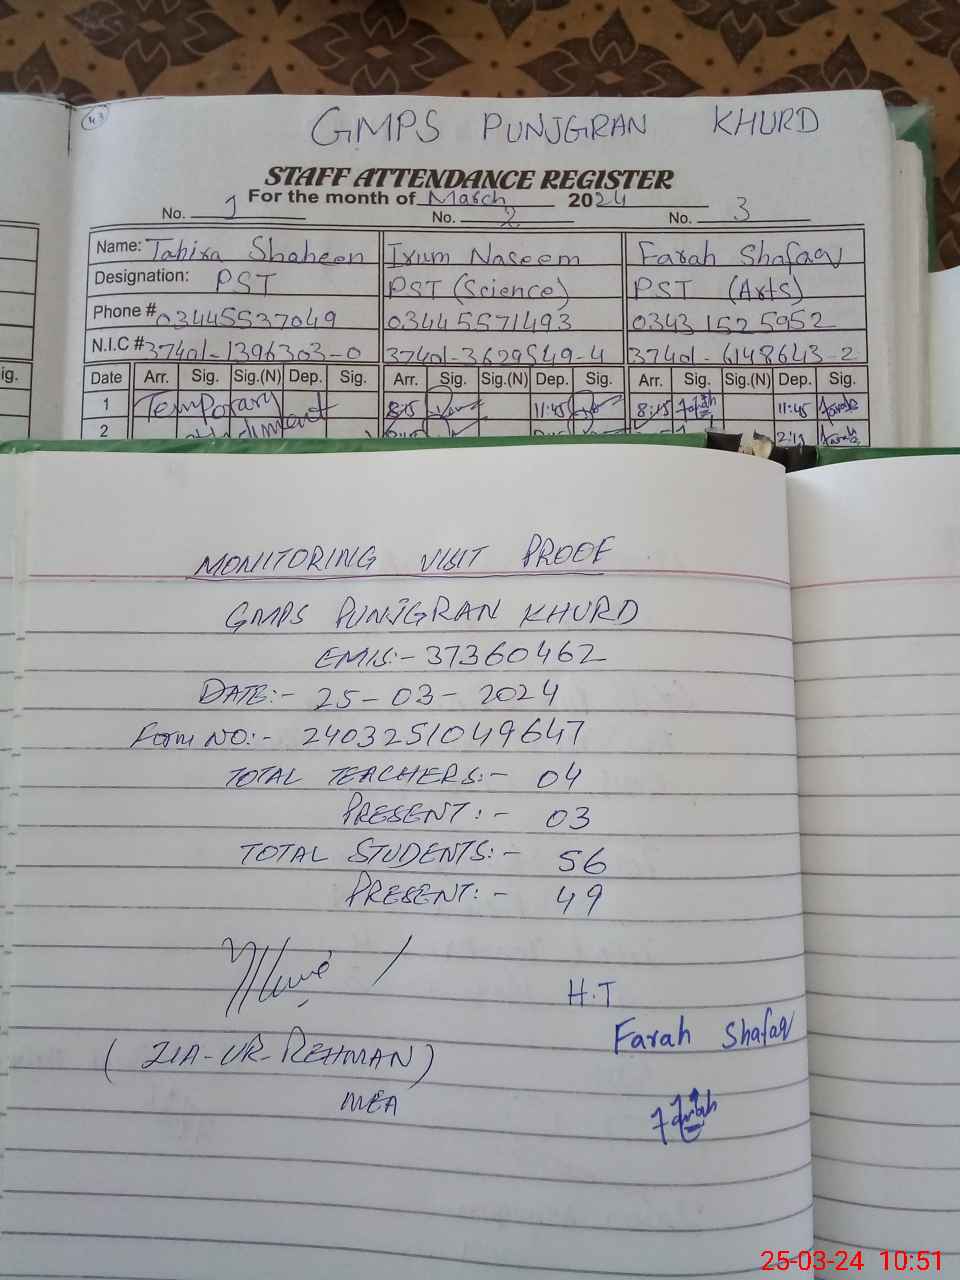 43
GMPS PUNJGRAN KHURD
STAFF ATTENDANCE REGISTER
For the month of March 2024
No. 1 No. 2 No. 3
Name: Tahira Shaheen Irum Naseem Farah Shafaq
Designation: PST PST (Science) PST (Arts)
Phone # 03445537049 03445571493 03431525952
N.I.C # 37401-1396303-0 37401-3629549-4 37401-6148643-2
ig. Date Arr. Sig. Sig.(N) Dep. Sig. Arr. Sig. Sig.(N) Dep. Sig. Arr. Sig. Sig.(N) Dep. Sig.
1 Temporary 8:15 11:45 8:15 Farah 11:45 Farah
2 Farah
MONITORING VISIT PROOF
GMPS PUNJGRAN KHURD
EMIS:- 37360462
DATE:- 25-03-2024
Form NO:- 2403251049647
TOTAL TEACHERS:- 04
PRESENT:- 03
TOTAL STUDENTS:- 56
PRESENT:- 49
H.T
Farah Shafaq
(ZIA-UR-REHMAN)
MEA
Farah
25-03-24 10:51